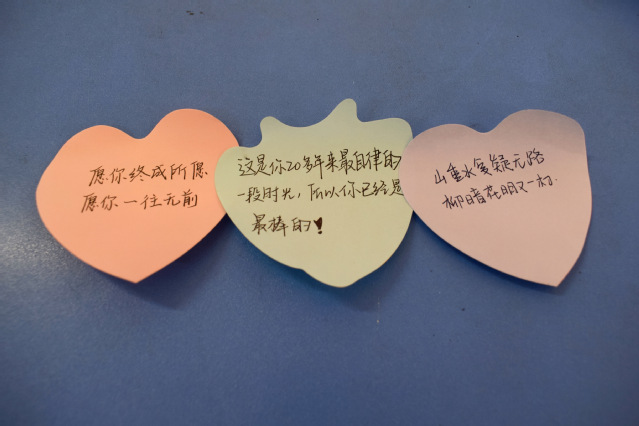 愿你终成所愿
愿你一往无前
这是你20多年来最自律的
一段时光，所以你已经是
最棒的！
山重水复疑无路
柳暗花明又一村.